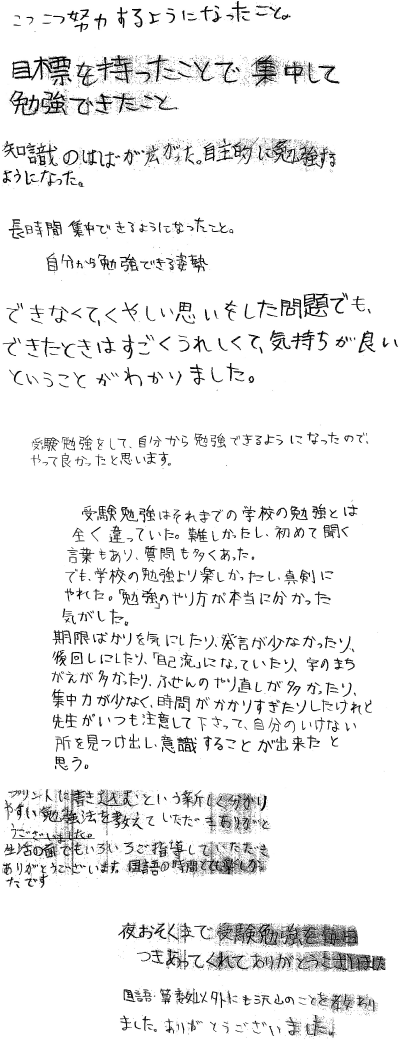 こつこつ努力するようになったこと。
目標を持ったことで集中して
勉強できたこと
知識のはばが広がった。自主的に勉強する
ようになった。
長時間集中できるようになったこと。
自分から勉強できる姿勢
できなくて、くやしい思いをした問題でも、
できたときはすごくうれしくて、気持ちが良い
ということがわかりました。
受験勉強をして、自分から勉強できるようになったので、
やって良かったと思います。
受験勉強はそれまでの学校の勉強とは
全く違っていた。難しかったし、初めて聞く
言葉もあり、質問も多くあった。
でも、学校の勉強より楽しかったし、真剣に
やれた。「勉強」のやり方が本当に分かった
気がした。
期限ばかりを気にしたり、発言が少なかったり、
後回しにしたり、「自己流」になっていたり、字のまち
がえが多かったり、ふせんのやり直しが多かったり、
集中力が少なく、時間がかかりすぎたりしたけれど
先生がいつも注意して下さって、自分のいけない
所を見つけ出し、意識することが出来たと
思う。
プリントに書き込むという新しく分かり
やすい勉強法を教えていただきありがと
うございました。
生活の面でもいろいろご指導していただき
ありがとうございます。国語の時間とても楽しかっ
たです
夜おそくまで受験勉強を毎日
つきあってくれてありがとうございました
国語・算数以外にも沢山のことを教わり
ました。ありがとうございました。